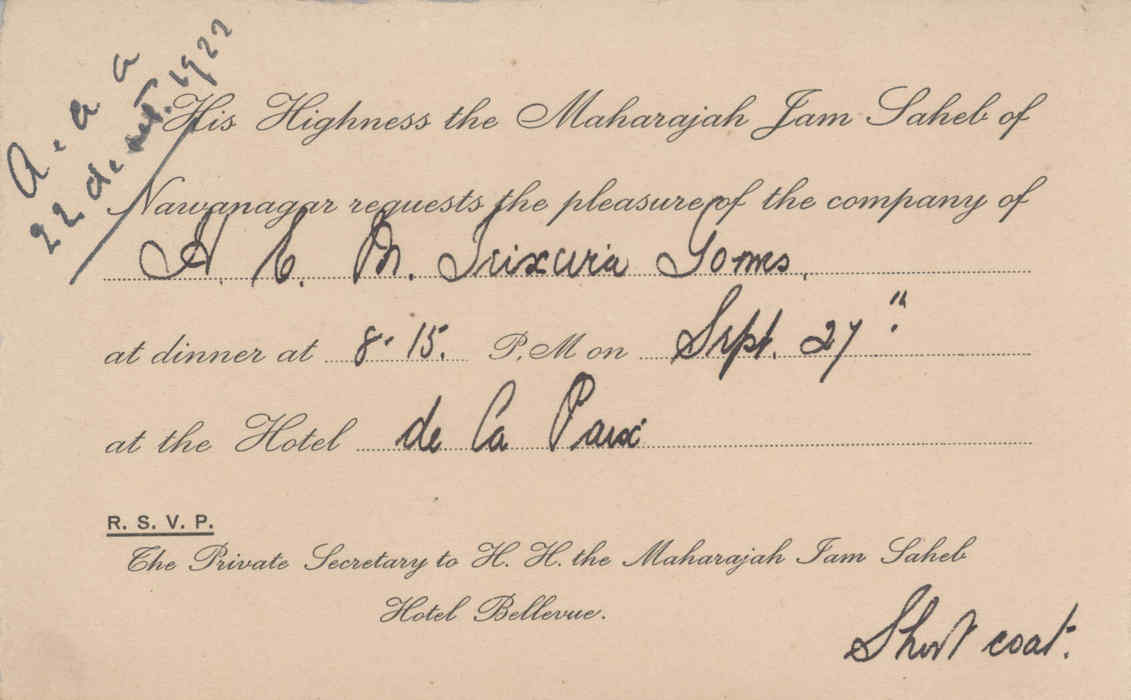 A. a a
22 de set. 1922
His Highness the Maharajah Jam Saheb of
Nawanagar requests the pleasure of the company of
H. E. M. Teixeira Gomes.
at dinner at 8.15. P.M on Sept. 27th
at the Hotel de la Paix
R. S. V. P.
The Private Secretary to H. H. the Maharajah Jam Saheb
Hotel Bellevue.
Short coat.